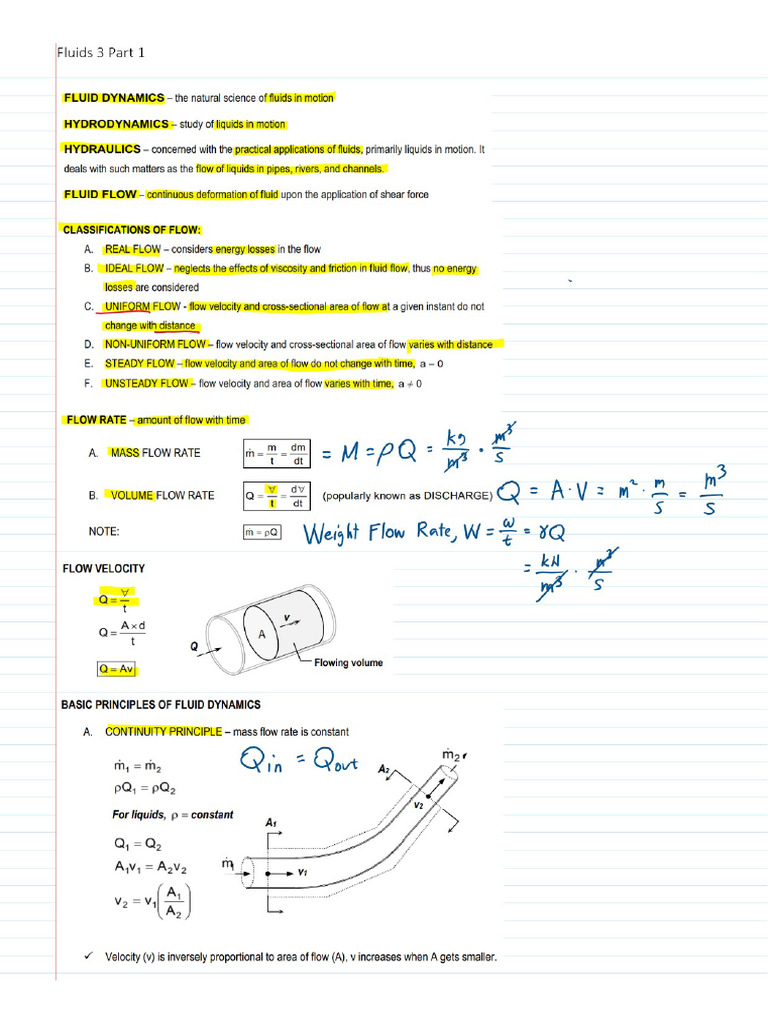 Fluids 3 Part 1
FLUID DYNAMICS – the natural science of fluids in motion
HYDRODYNAMICS – study of liquids in motion
HYDRAULICS – concerned with the practical applications of fluids, primarily liquids in motion. It
deals with such matters as the flow of liquids in pipes, rivers, and channels.
FLUID FLOW – continuous deformation of fluid upon the application of shear force
CLASSIFICATIONS OF FLOW:
A. REAL FLOW – considers energy losses in the flow
B. IDEAL FLOW – neglects the effects of viscosity and friction in fluid flow, thus no energy
losses are considered
C. UNIFORM FLOW - flow velocity and cross-sectional area of flow at a given instant do not
change with distance
D. NON-UNIFORM FLOW – flow velocity and cross-sectional area of flow varies with distance
E. STEADY FLOW – flow velocity and area of flow do not change with time, a = 0
F. UNSTEADY FLOW – flow velocity and area of flow varies with time, a ≠ 0
FLOW RATE – amount of flow with time
A. MASS FLOW RATE ṁ = m/t = dm/dt = M = ρQ = kg/m³ · m³/s
B. VOLUME FLOW RATE Q = ∀/t = d∀/dt (popularly known as DISCHARGE) Q = A·V = m² · m/s = m³/s
NOTE: ṁ = ρQ Weight Flow Rate, W = ω/t = γQ
= kN/m³ · m³/s
FLOW VELOCITY
Q = ∀/t
Q = A×d/t
Q = Av
Q
A
v
Flowing volume
BASIC PRINCIPLES OF FLUID DYNAMICS
A. CONTINUITY PRINCIPLE – mass flow rate is constant
Qin = Qout
ṁ₁ = ṁ₂
ρQ₁ = ρQ₂
For liquids, ρ = constant
Q₁ = Q₂
A₁v₁ = A₂v₂
v₂ = v₁(A₁/A₂)
ṁ₂
A₂
v₂
A₁
ṁ
v₁
✓ Velocity (v) is inversely proportional to area of flow (A), v increases when A gets smaller.